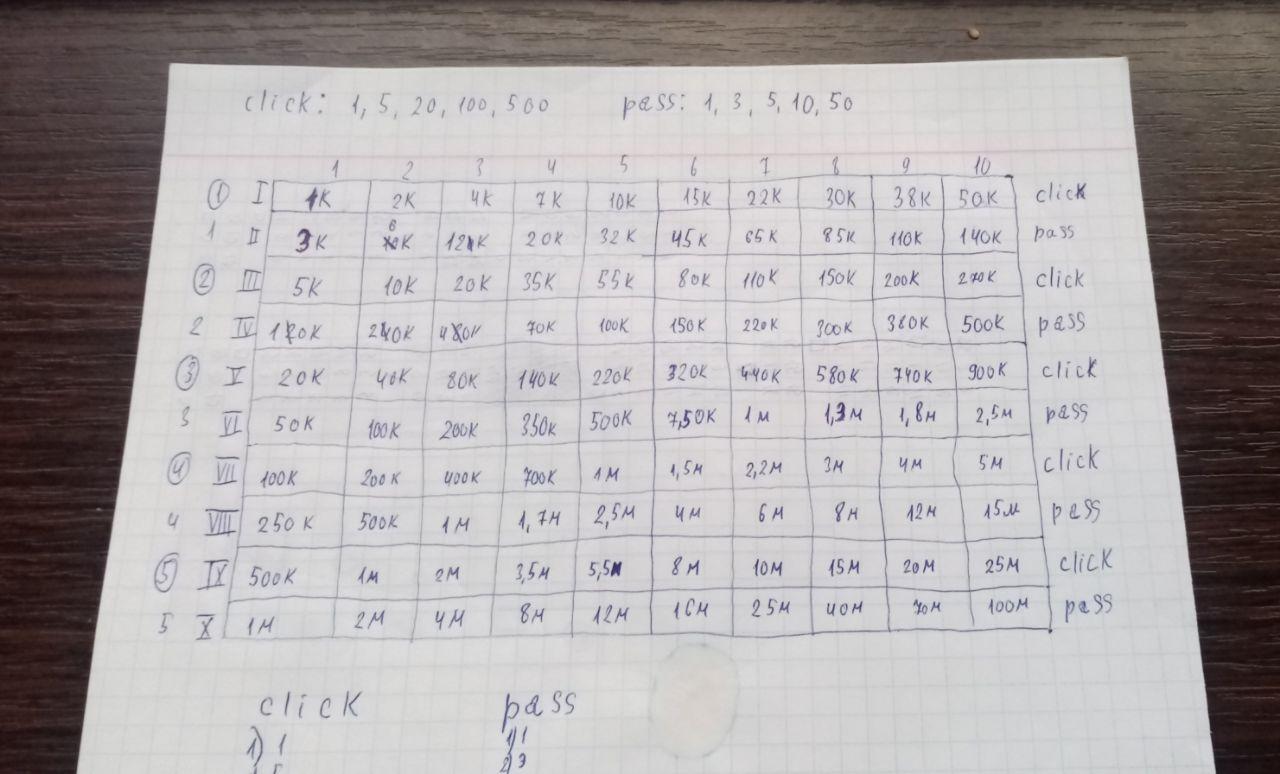 click: 1, 5, 20, 100, 500 pass: 1, 3, 5, 10, 50
1 2 3 4 5 6 7 8 9 10
① I 1K 2K 4K 7K 10K 15K 22K 30K 38K 50K click
1 II 3K 6K 12K 20K 32K 45K 65K 85K 110K 140K pass
② III 5K 10K 20K 35K 55K 80K 110K 150K 200K 270K click
2 IV 10K 20K 40K 70K 100K 150K 220K 300K 380K 500K pass
③ V 20K 40K 80K 140K 220K 320K 440K 580K 740K 900K click
3 VI 50K 100K 200K 350K 500K 7,50K 1M 1,3M 1,8M 2,5M pass
④ VII 100K 200K 400K 700K 1M 1,5M 2,2M 3M 4M 5M click
4 VIII 250K 500K 1M 1,7M 2,5M 4M 6M 8M 12M 15M pass
⑤ IX 500K 1M 2M 3,5M 5,5M 8M 10M 15M 20M 25M click
5 X 1M 2M 4M 8M 12M 16M 25M 40M 70M 100M pass
click pass
1) 1 1) 1
2) 3